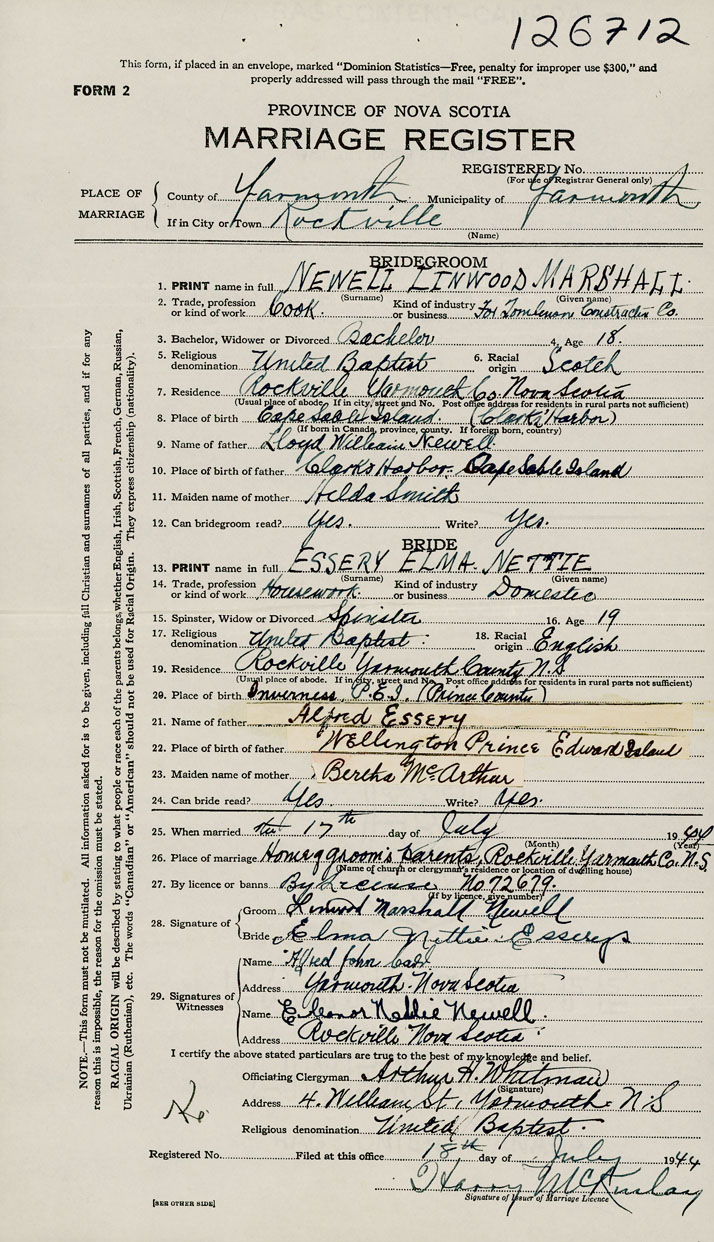 126712
This form, if placed in an envelope, marked "Dominion Statistics—Free, penalty for improper use $300," and
properly addressed will pass through the mail "FREE".
FORM 2
PROVINCE OF NOVA SCOTIA
MARRIAGE REGISTER
REGISTERED No.
(For use of Registrar General only)
PLACE OF MARRIAGE
County of Yarmouth Municipality of Yarmouth
If in City or Town Rockville
(Name)
BRIDEGROOM
1. PRINT name in full NEWELL LINWOOD MARSHALL
(Surname) (Given name)
2. Trade, profession or kind of work Cook. Kind of industry or business For Tomlinson Constractin Co.
3. Bachelor, Widower or Divorced Bachelor 4. Age 18.
5. Religious denomination United Baptist 6. Racial origin Scotch
7. Residence Rockville Yarmouth Co. Nova Scotia
(Usual place of abode. If in city, street and No. Post office address for residents in rural parts not sufficient)
8. Place of birth Cape Sable Island. (Clarks Harbor)
(If born in Canada, province, county. If foreign born, country)
9. Name of father Lloyd William Newell
10. Place of birth of father Clarks Harbor. Cape Sable Island
11. Maiden name of mother Hilda Smith
12. Can bridegroom read? Yes. Write? Yes.
BRIDE
13. PRINT name in full ESSERY ELMA. NETTIE
(Surname) (Given name)
14. Trade, profession or kind of work Housework Kind of industry or business Domestic
15. Spinster, Widow or Divorced Spinster 16. Age 19
17. Religious denomination United Baptist: 18. Racial origin English
19. Residence Rockville Yarmouth County N.S
(Usual place of abode. If in city, street and No. Post office address for residents in rural parts not sufficient)
20. Place of birth Inverness, P.E.I. (Prince County)
21. Name of father Alfred Essery
22. Place of birth of father Wellington Prince Edward Island
23. Maiden name of mother Bertha McArthur
24. Can bride read? Yes. Write? Yes.
25. When married the 17th day of July 1944
(Month) (Year)
26. Place of marriage Home of groom's parents, Rockville, Yarmouth Co. N.S.
(Name of church or clergyman's residence or location of dwelling house)
27. By licence or banns By License No 72679.
(If by licence, give number)
28. Signature of
Groom Linwood Marshall Newell
Bride Elma Nettie Essery
29. Signatures of Witnesses
Name Alfred John
Address Yarmouth. Nova Scotia
Name Eleanor Nellie Newell.
Address Rockville Nova Scotia
I certify the above stated particulars are true to the best of my knowledge and belief.
Officiating Clergyman Arthur H. Whitman
(Signature)
Address 4. William St, Yarmouth. N.S
Religious denomination United Baptist.
Registered No. Filed at this office 18th day of July 1944
Harry McKinlay
Signature of Issuer of Marriage Licence
[SEE OTHER SIDE]
NOTE.—This form must not be mutilated. All information asked for is to be given, including full Christian and surnames of all parties, and if for any
reason this is impossible, the reason for the omission must be stated.
RACIAL ORIGIN will be described by stating to what people or race each of the parents belongs, whether English, Irish, Scottish, French, German, Russian,
Ukrainian (Ruthenian), etc. The words "Canadian" or "American" should not be used for Racial Origin. They express citizenship (nationality).